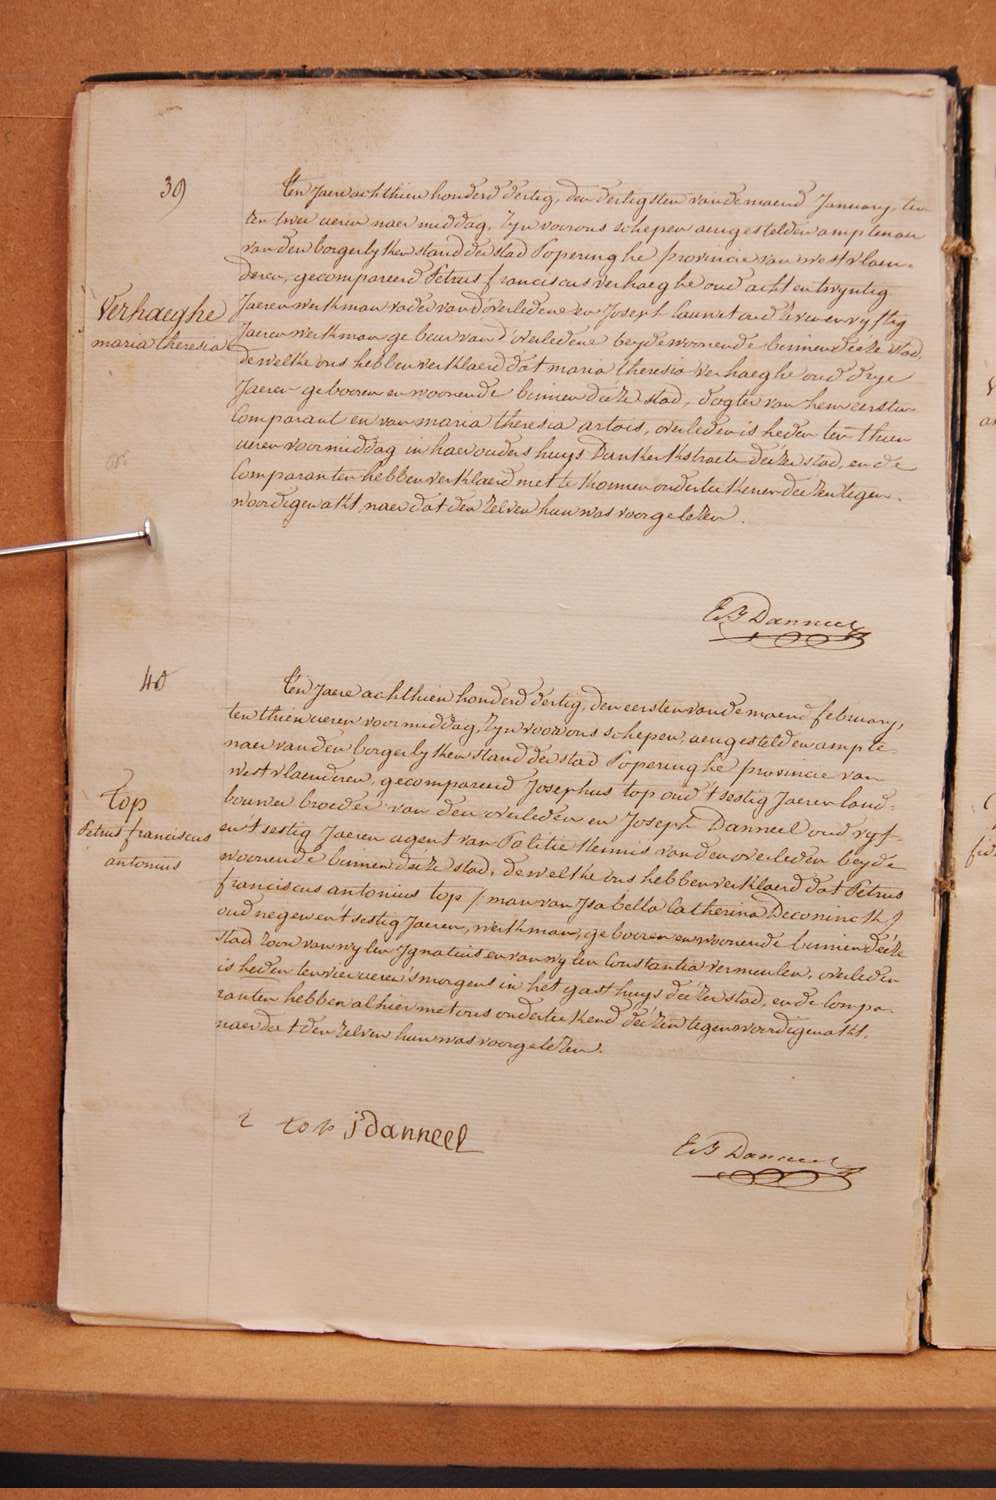 39
Ten Jaere achthien honderd dertig, den dertigsten van de maend January, ten
ten twee ueren naer middag, Zyn voor ons schepen aengestelden amptenaer
van den borgerlyken stand der stad Poperinghe provincie van westvlaen-
deren, gecompareerd Petrus franciscus verhaeghe oud acht en twyntig
Jaeren werkman vader van d'overledene en Joseph Lauwet oud seven en vyftig
Jaeren werkman gebeur van d'overledene beyde woonende binnen deeze stad,
dewelke ons hebben verklaerd dat maria theresia verhaeghe oud drye
Jaeren gebooren en woonende binnen deeze stad, dogter van hem eersten
Comparant en van maria theresia artois, overleden is heden ten thien
ueren voormiddag in haer ouders huys Dunkerkstraete deezer stad, en de
Comparanten hebben verklaerd niet te konnen onderteekenen deezen tegen-
woordigen akt, naer dat den zelven hun was voorgelezen.
Verhaeghe
maria theresia
E J Danneel
40
Ten Jaere achthien honderd dertig, den eersten van de maend february,
ten thien ueren voormiddag, Zyn voor ons schepen, aengestelden ampte-
naer van den borgerlyken stand der stad Poperinghe provincie van
westvlaenderen, gecompareerd Josephus top oud 't sestig Jaeren land-
bouwer broeder van den overleden en Joseph Danneel oud vyf-
en 't sestig Jaeren agent van Politie kennis van den overleden beyde
woonende binnen deeze stad, dewelke ons hebben verklaerd dat Petrus
franciscus antonius top / man van Isabella Catherina Deconinck /
oud negen en 't sestig Jaeren, werkman, gebooren en woonende binnen deeze
stad zoon van wylen Ignatius en van wylen Constantia vermeulen, overleden
is heden ten vier ueren 's morgens in het gasthuys deezer stad, en de Compa-
ranten hebben alhier met ons onderteekend deezen tegenwoordigen akt,
naer dat den zelven hun was voorgelezen.
top
Petrus franciscus
antonius
top j danneel
E J Danneel